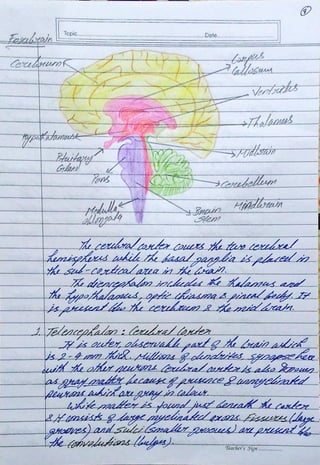 8
Topic
Date
Forebrain
Cerebrum
Corpus
Callosum
Ventricles
Thalamus
Hypothalamus
Midbrain
Pituitary
Gland
Pons
Cerebellum
Medulla
oblongata
Brain
Stem
Hindbrain
The cerebral cortex covers the two cerebral
hemispheres while the basal ganglia is placed in
the sub-cortical area in the brain.
The diencephalon includes the thalamus and
the hypothalamus, optic chiasma & pineal body. It
is present b/w the cerebrum & the mid brain.
1. Telencephalon : Cerebral Cortex
It is outer, observable part of the brain which
is 2-4 mm thick. Millions of dendrites synapse here
with the other neurons. Cerebral cortex is also known
as gray matter because of presence of unmyelinated
neurons which are gray in colour.
White matter is found just beneath the cortex
& it consists of large myelinated axons. Fissures (large
grooves) and Sulci (smaller grooves) are present b/w
the convolutions (bulges).
Teacher's Sign